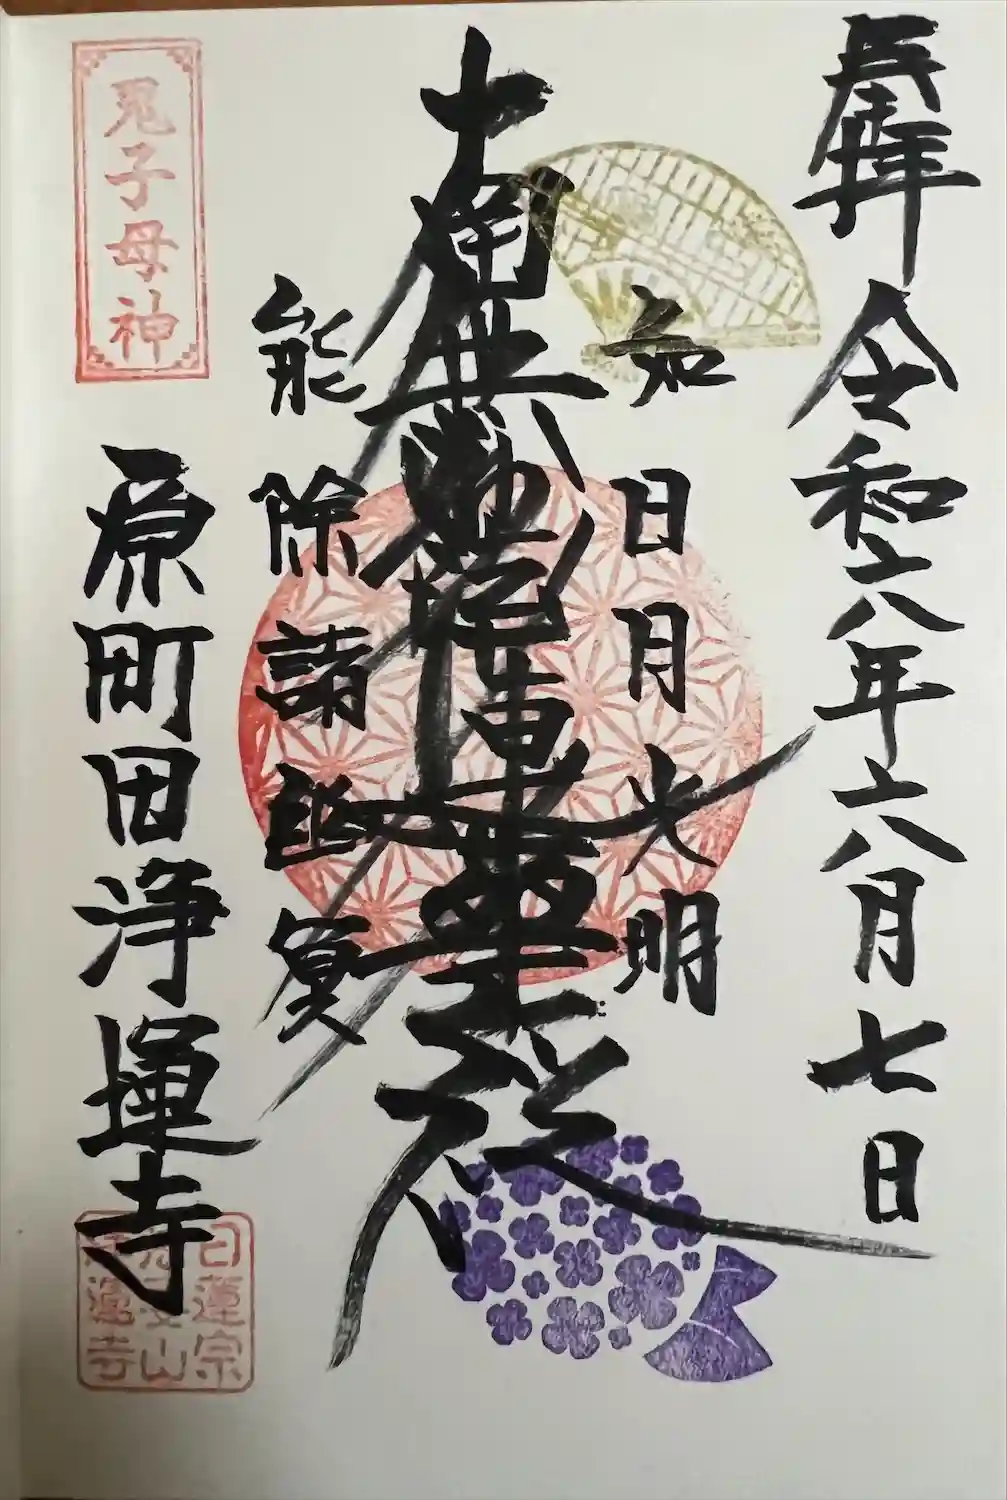 奉拝 令和六年六月七日
如日月光明
南無妙法蓮華経
能除諸幽冥
鬼子母神
原町田浄運寺
日蓮宗
運寺